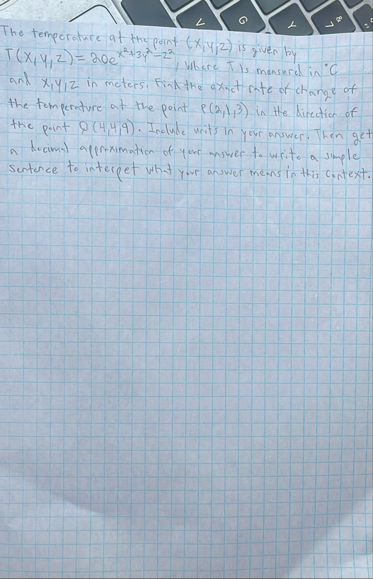 The temperature at the point (x,y,z) is given by
T(x,y,z)=20e^x²+3y²-z², where T is measured in °C
and x,y,z in meters. Find the exact rate of change of
the temperature at the point P(2,1,3) in the direction of
the point Q(4,4,9). Include units in your answer. Then get
a decimal approximation of your answer to write a simple
sentence to interpet what your answer means in this context.